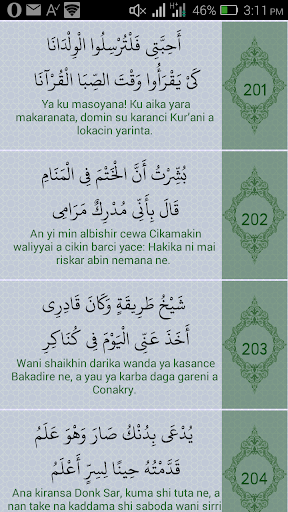 46% 3:11 PM
أَحِبَّتِي فَلْتُرْسِلُوا الْوِلْدَانَا
كَيْ يَقْرَأُوا وَقْتَ الصِّبَا الْقُرْآنَا
201
Ya ku masoyana! Ku aika yara
makaranata, domin su karanci Kur'ani a
lokacin yarinta.
بُشِّرْتُ أَنَّ الْخَتْمَ فِي الْمَنَامِ
قَالَ بِأَنِّي مُدْرِكٌ مَرَامِي
202
An yi min albishir cewa Cikamakin
waliyyai a cikin barci yace: Hakika ni mai
riskar abin nemana ne.
شَيْخُ طَرِيقَةٍ وَكَانَ قَادِرِي
أَخَذَ عَنِّي الْيَوْمَ فِي كُنَاكِرِي
203
Wani shaikhin darika wanda ya kasance
Bakadire ne, a yau ya karba daga gareni a
Conakry.
يُدْعَى بِدُنْكَ صَارَ وَهْوَ عَلَمُ
قَدَّمْتُهُ حِينًا لِسِرٍّ أَعْلَمُ
204
Ana kiransa Donk Sar, kuma shi tuta ne, a
nan take na kaddama shi saboda wani sirri